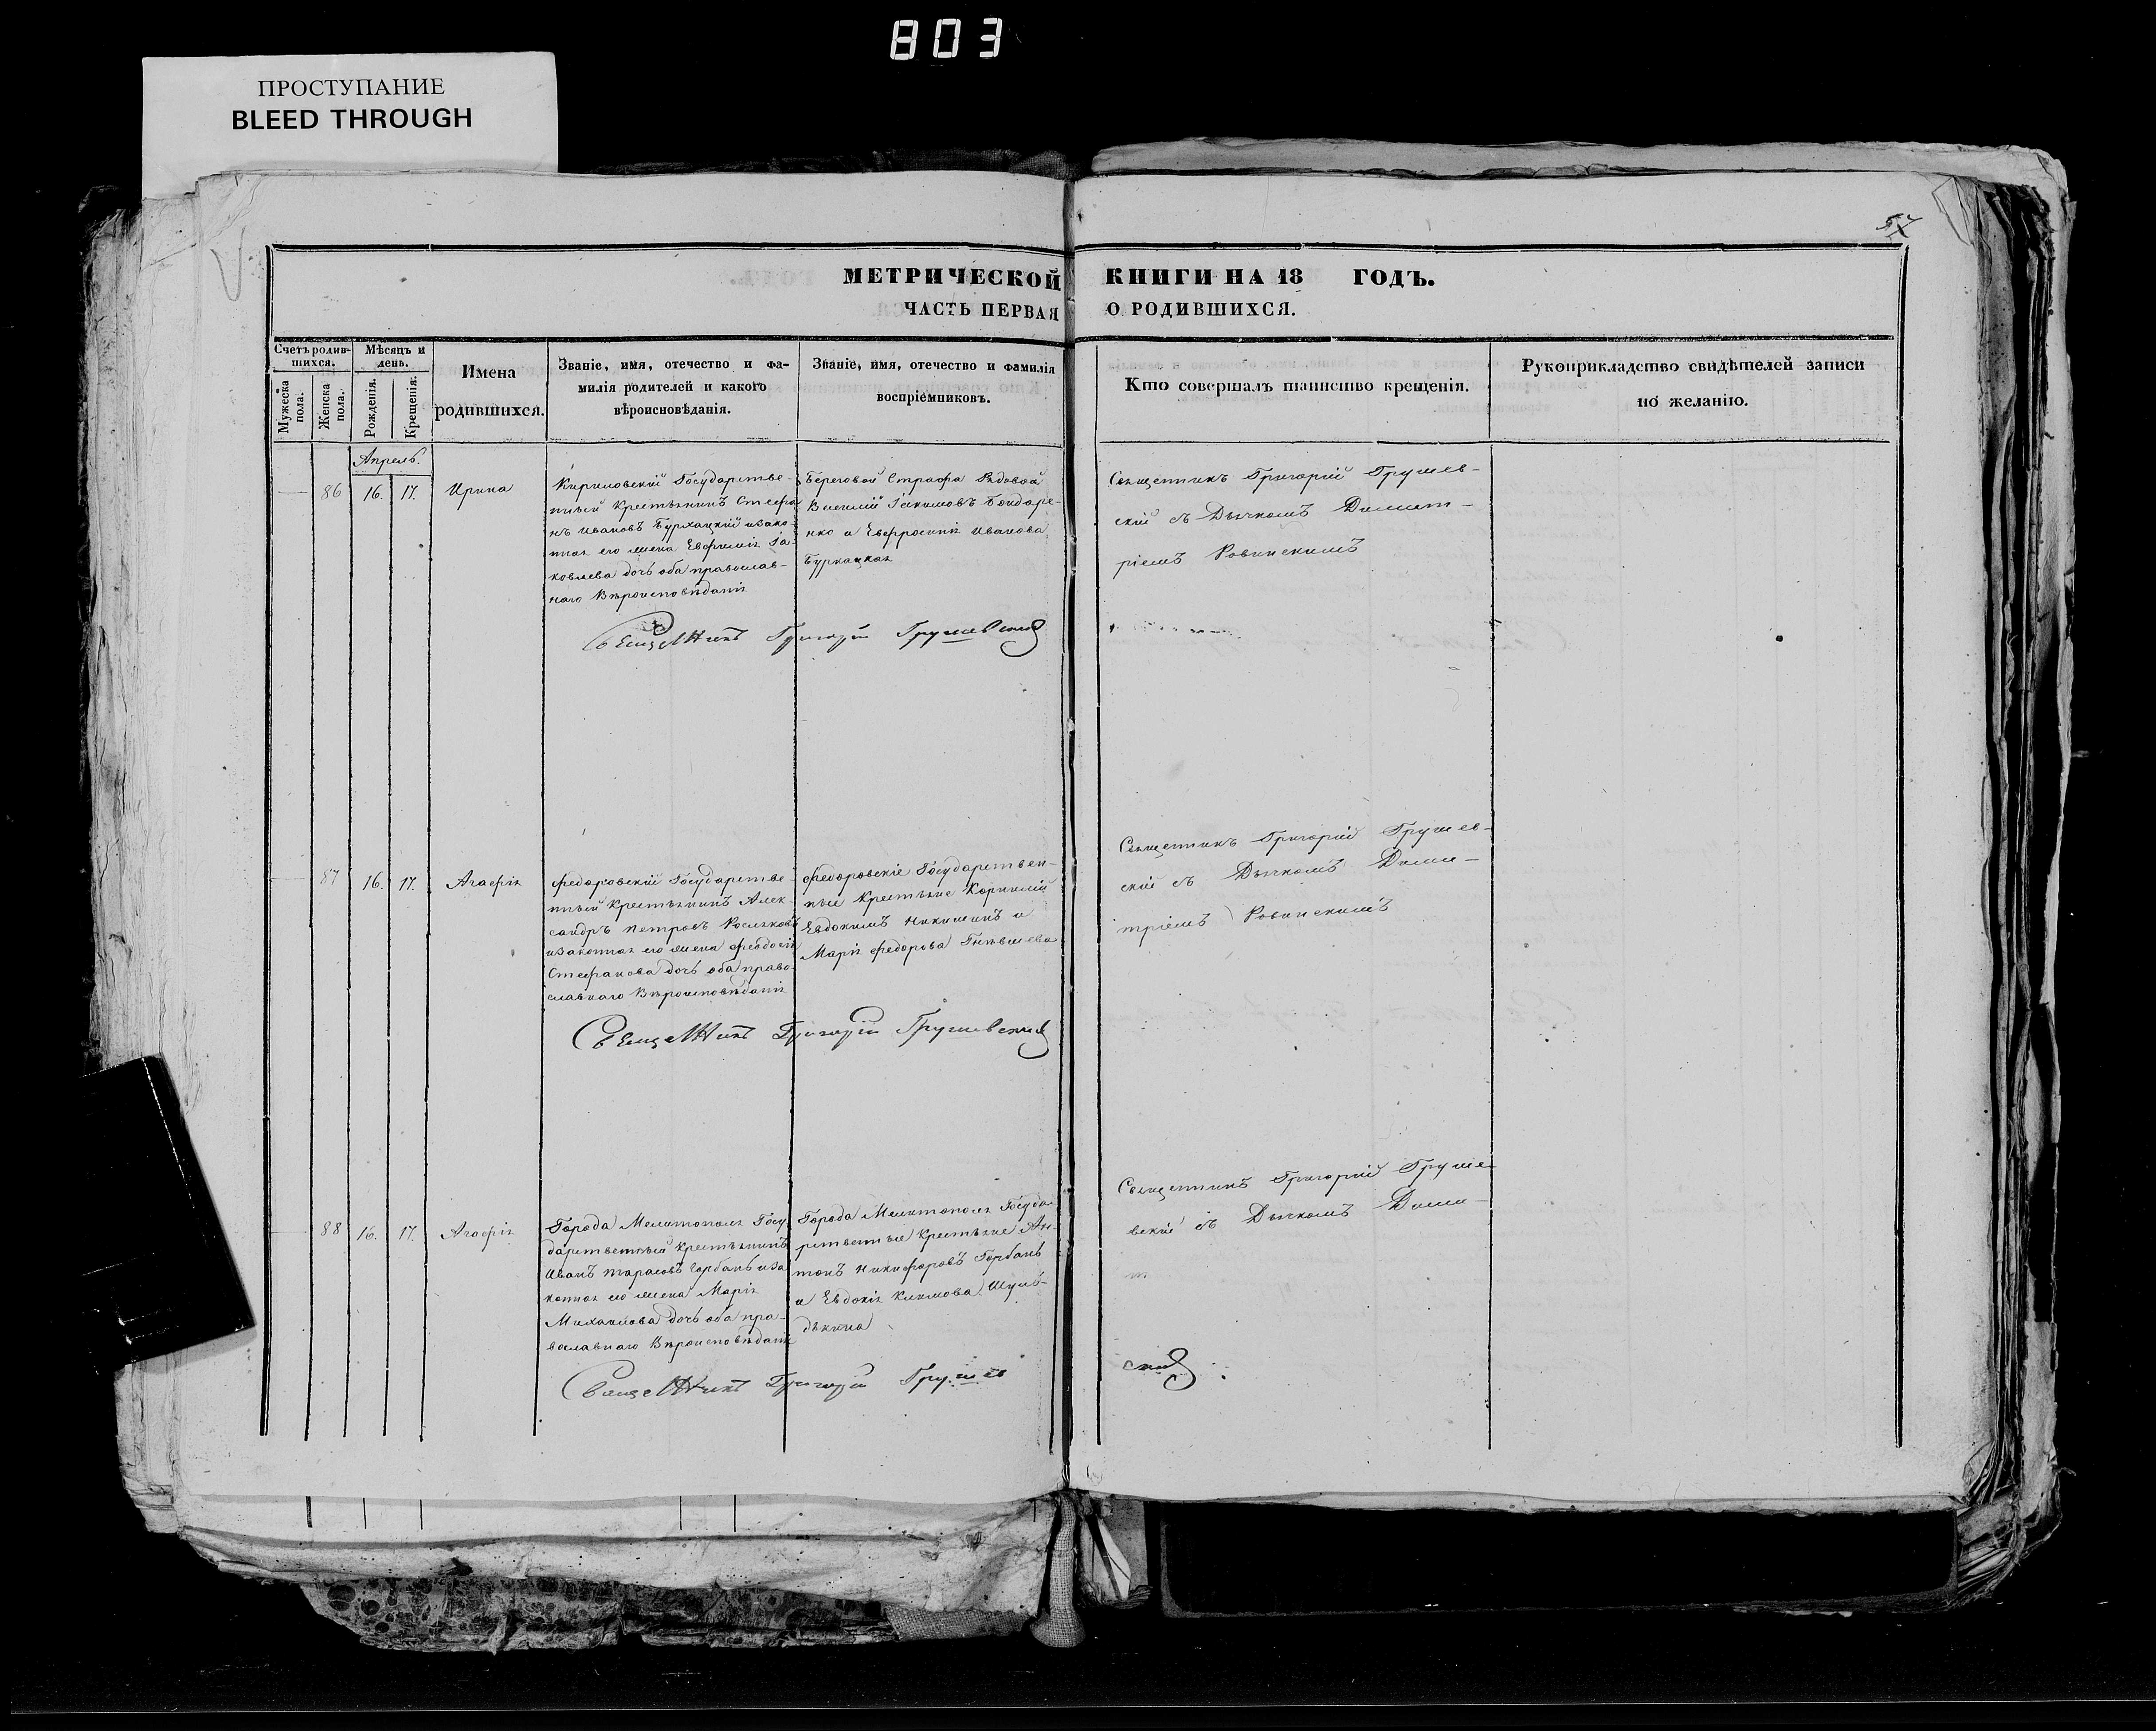 803
ПРОСТУПАНИЕ
BLEED THROUGH
57
МЕТРИЧЕСКОЙ КНИГИ НА 18 ГОДЪ.
ЧАСТЬ ПЕРВАЯ О РОДИВШИХСЯ.
Счетъ родив-
шихся.
Мужеска пола.
Женска пола.
Мѣсяцъ и
день.
Рожденія.
Крещенія.
Имена
родившихся.
Званіе, имя, отечество и фа-
милія родителей и какого
вѣроисповѣданія.
Званіе, имя, отечество и фамилія
воспріемниковъ.
Кто совершалъ таинство крещенія.
Рукоприкладство свидѣтелей записи
по желанію.
Апрель.
86
16.
17.
Ирина
Кириловскій Государстве-
нный Крестьянинъ Стефа
нъ Ивановъ Бурхацкій изако-
нная его жена Евфимія Іа-
ковлева дочь оба православ-
наго Вѣроисповѣданія
Береговой Стражи Рядовой
Василій Іакимовъ Бондаре-
нко и Евфросинія Иванова
Буркацкая
Священникъ Григорій Грушев-
скій съ Дьячкомъ Димит-
ріемъ Ровинскимъ
Священникъ Григорій Грушевскій
87
16.
17.
Агафія
Федоровскій Государстве-
нный Крестьянинъ Алек-
сандръ Петровъ
изаконная его жена Феодосія
Стефанова дочь оба право-
славнаго Вѣроисповѣданія
Федоровскіе Государствен-
ные Крестьяне Корнилій
Евдокимъ и
Марія Федорова
Священникъ Григорій Грушев-
скій съ Дьячкомъ Дими-
тріемъ Ровинскимъ
Священникъ Григорій Грушевскій
88
16.
17.
Агафія
Города Мелитополя Госу
дарственный Крестьянинъ
Иванъ Тарасовъ Горбань иза
конная его жена Марія
Михайлова дочь оба пра-
вославнаго Вѣроисповѣданія
Города Мелитополя Госуда-
рственные Крестьяне Ан-
тонъ Никифоровъ Горбань
и Евдокія Климова
Священникъ Григорій Груше-
вскій съ Дьячкомъ Дими-
т
Священникъ Григорій Грушев
скій